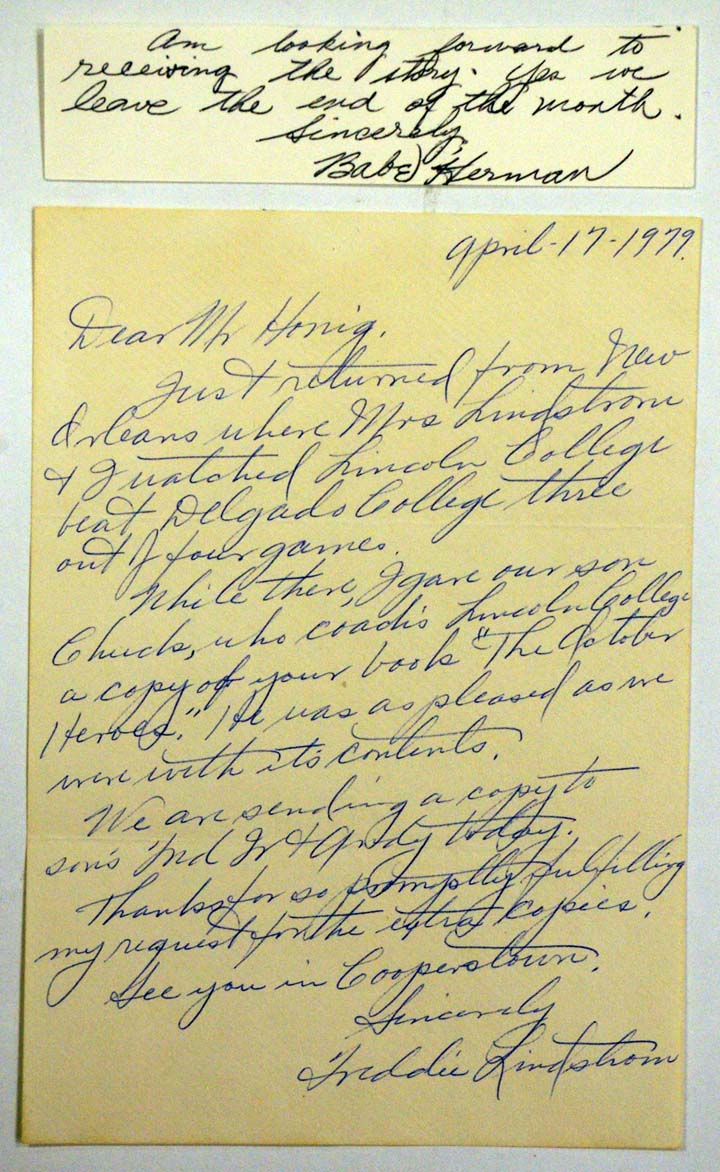 Am looking forward to
receiving the story. Yes we
leave the end of the month.
Sincerely,
Babe Herman
April-17-1979.
Dear Mr Honig.
Just returned from New
Orleans where Mrs Lindstrom
& I watched Lincoln College
beat Delgado College three
out of four games.
While there, I gave our son
Chuck, who coach's Lincoln College
a copy of your book "The October
Heroes." He was as pleased as we
were with it's contents.
We are sending a copy to
son's Fred Jr & Andy today.
Thanks for so promptly fulfilling
my request for the extra copies.
See you in Cooperstown.
Sincerely
Freddie Lindstrom